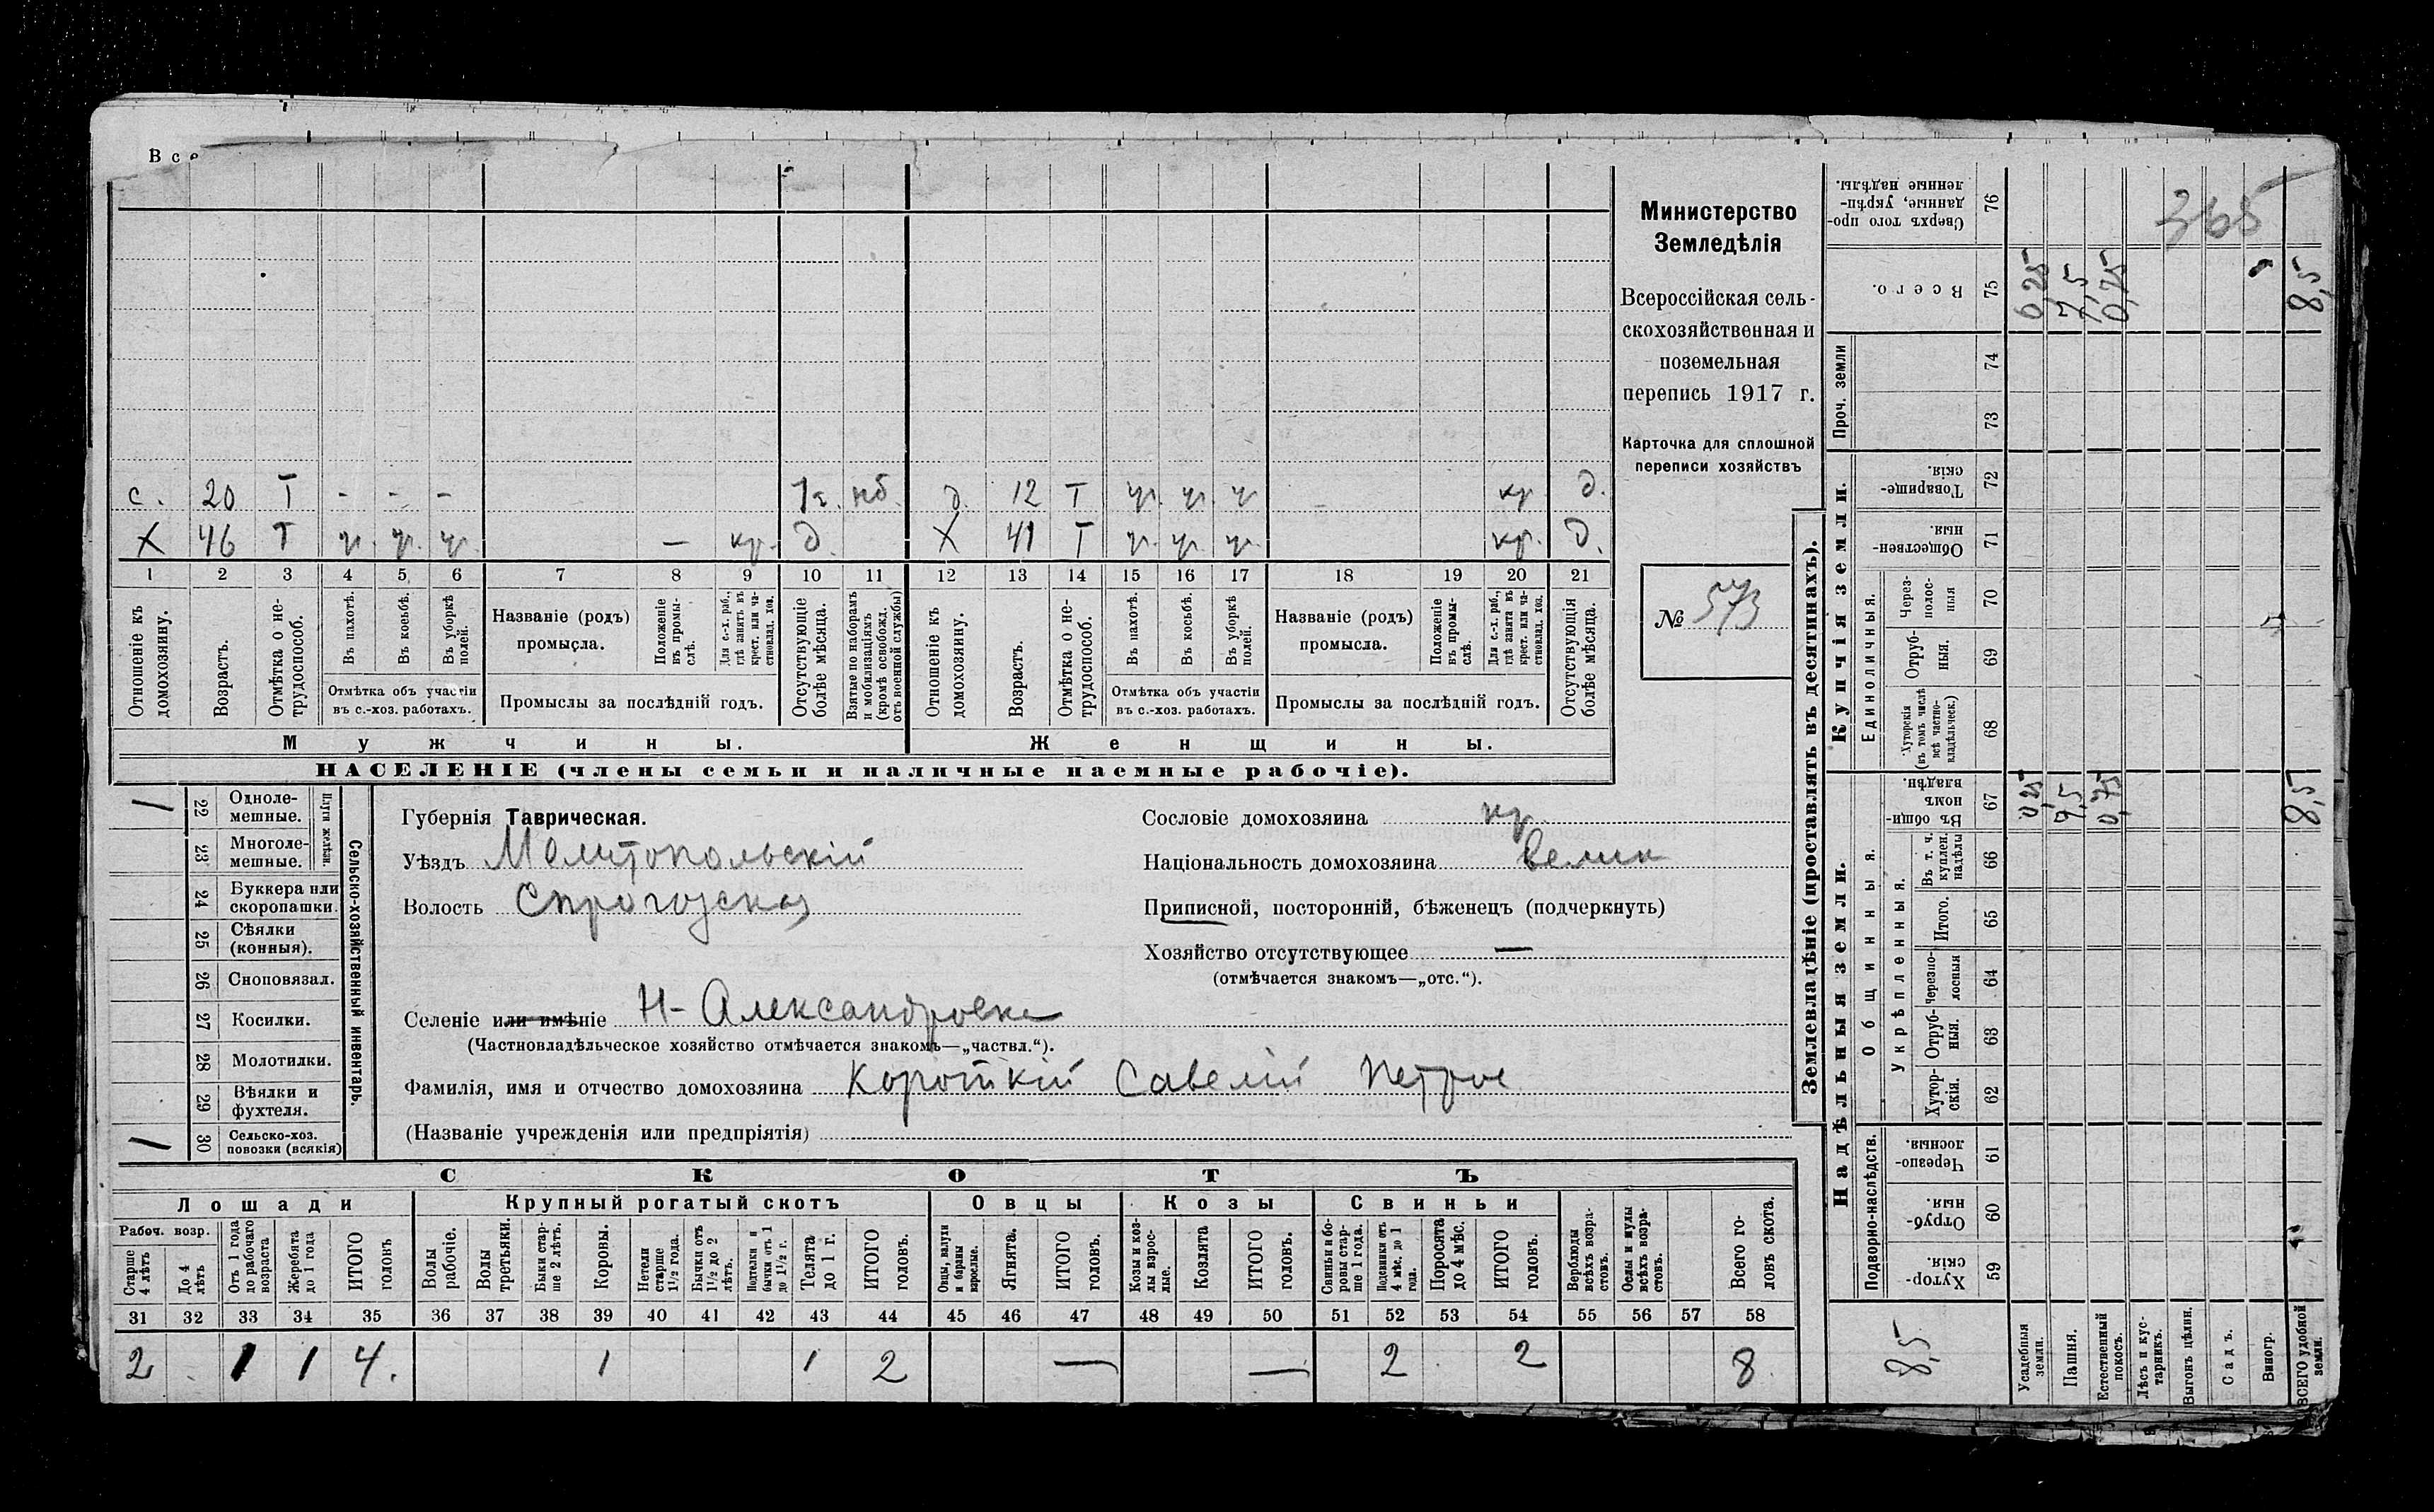 Все
с. 20 Т - - - 1г. нб. д. 12 Т уч. уч. уч кр д.
Х 46 Т уч. уч. уч. — кр. д. Х 41 Т уч. уч. уч. кр. д.
1 2 3 4 5 6 7 8 9 10 11 12 13 14 15 16 17 18 19 20 21
Отношеніе къ домохозяину.
Возрастъ.
Отмѣтка о не-трудоспособ.
Въ пахотѣ.
Въ косьбѣ.
Въ уборкѣ полей.
Отмѣтка объ участіи
въ с.-хоз. работахъ.
Названіе (родъ)
промысла.
Положеніе въ промы-слѣ.
Для с.-х. раб., гдѣ занятъ въ крест. или ча-стновлад. хоз.
Промыслы за послѣдній годъ.
Отсутствующіе болѣе мѣсяца.
Взятые по наборамъ и мобилизаціямъ (кромѣ освобожд. отъ военной службы)
Отношеніе къ домохозяину.
Возрастъ.
Отмѣтка о не-трудоспособ.
Въ пахотѣ.
Въ косьбѣ.
Въ уборкѣ полей.
Отмѣтка объ участіи
въ с.-хоз. работахъ.
Названіе (родъ)
промысла.
Положеніе въ промы-слѣ.
Для с.-х. раб., гдѣ занята въ крест. или ча-стновлад. хоз.
Промыслы за послѣдній годъ.
Отсутствующія болѣе мѣсяца.
Мужчины.
Женщины.
НАСЕЛЕНІЕ (члены семьи и наличные наемные рабочіе).
Министерство
Земледѣлія
Всероссійская сель-
скохозяйственная и
поземельная
перепись 1917 г.
Карточка для сплошной
переписи хозяйствъ
№ 573
Сельско-хозяйственный инвентарь.
Плуги желѣзн.
/ 22 Одноле-мешные.
23 Многоле-мешные.
24 Буккера или скоропашки.
25 Сѣялки (конныя).
26 Сноповязал.
27 Косилки.
28 Молотилки.
29 Вѣялки и фухтеля.
/ 30 Сельско-хоз. повозки (всякія)
Губернія Таврическая.
Уѣздъ Мелитопольскій
Волость
Селеніе или имѣніе Н-Александровка
(Частновладѣльческое хозяйство отмѣчается знакомъ—„частвл.“).
Фамилія, имя и отчество домохозяина Короткій Савелій Петров
(Названіе учрежденія или предпріятія)
Сословіе домохозяина кр.
Національность домохозяина велик
Приписной, посторонній, бѣженецъ (подчеркнуть)
Хозяйство отсутствующее —
(отмѣчается знакомъ—„отс.“).
СКОТЪ
Лошади
Крупный рогатый скотъ
Овцы
Козы
Свиньи
Рабоч. возр.
Старше 4 лѣтъ
До 4 лѣтъ
Отъ 1 года до рабочаго возраста
Жеребята до 1 года
ИТОГО головъ
Волы рабочіе.
Волы третьяки.
Быки стар-ше 2 лѣтъ.
Коровы.
Нетели старше 1½ года.
Бычки отъ 1½ до 2 лѣтъ.
Подтелки и бычки отъ 1 до 1½ г.
Телята до 1 г.
ИТОГО головъ.
Овцы, валухи и бараны взрослые.
Ягнята.
ИТОГО головъ.
Козы и коз-лы взрос-лые.
Козлята
ИТОГО головъ.
Свиньи и бо-ровы стар-ше 1 года.
Подсвинки отъ 4 мѣс. до 1 года.
Поросята до 4 мѣс.
ИТОГО головъ.
Верблюды всѣхъ возра-стовъ.
Ослы и мулы всѣхъ возра-стовъ.
Всего го-ловъ скота.
31 32 33 34 35 36 37 38 39 40 41 42 43 44 45 46 47 48 49 50 51 52 53 54 55 56 57 58
2 1 1 4. 1 1 2 — — 2 2 8
Землевладѣніе (проставлять въ десятинахъ).
Надѣльныя земли.
Купчія земли.
Проч. земли
Подворно-наслѣдств.
Общинныя.
Укрѣпленныя.
Единоличныя.
59 Хутор-скія.
60 Отруб-ныя.
61 Черезпо-лосныя.
62 Хутор-скія.
63 Отруб-ныя.
64 Черезпо-лосныя
65 Итого.
66 Въ т. ч. куплен. надѣлы
67 Въ общин-номъ владѣн.
68 Хуторскія (въ томъ числѣ всѣ частно-владѣльческ.)
69 Отруб-ныя.
70 Через-полос-ныя
71 Обществен-ныя.
72 Товарище-скія.
73
74
75 Всего.
76 Сверхъ того про-данные, укрѣп-ленные надѣлы.
8,5
Усадебныя земли. 0,25 0,25
Пашня. 7,5 7,5
Естественный покосъ. 0,75 0,75
Лѣсъ и кус-тарникъ.
Выгонъ цѣлин.
Садъ.
Виногр.
ВСЕГО удобной земли. 8,5 8,5
365